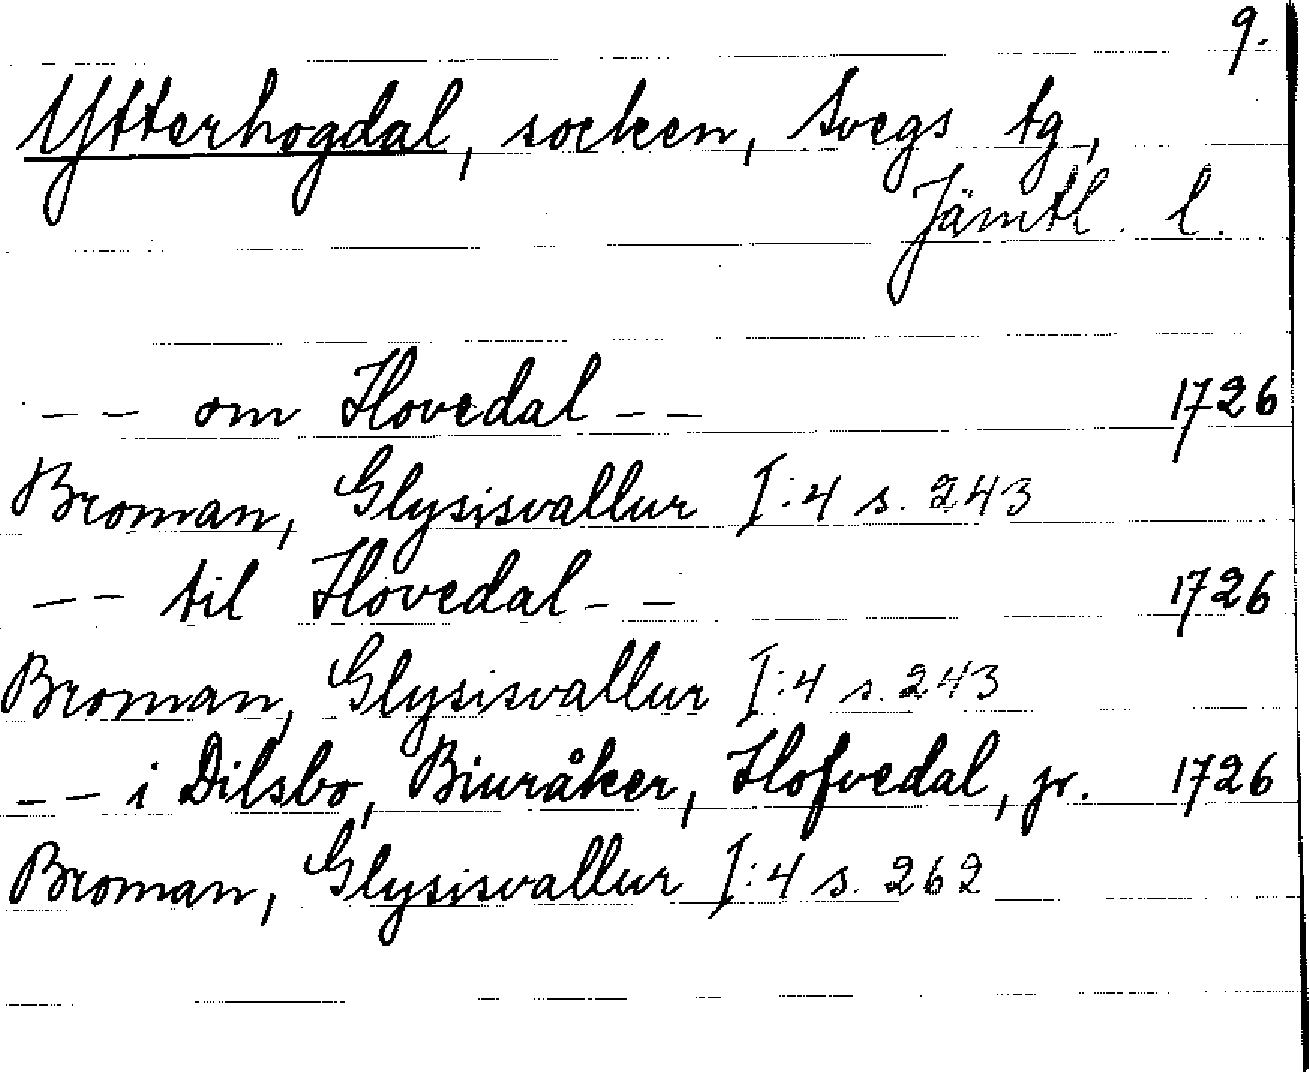 9.
Ytterhogdal, socken, Svegs tg,
Jämtl. l.
-- om Hovedal -- 1726
Broman, Glysisvallur I:4 s. 243
-- til Hovedal -- 1726
Broman, Glysisvallur I:4 s. 243
-- i Dilsbo, Biuråker, Hofvedal, jr. 1726
Broman, Glysisvallur I:4 s. 262